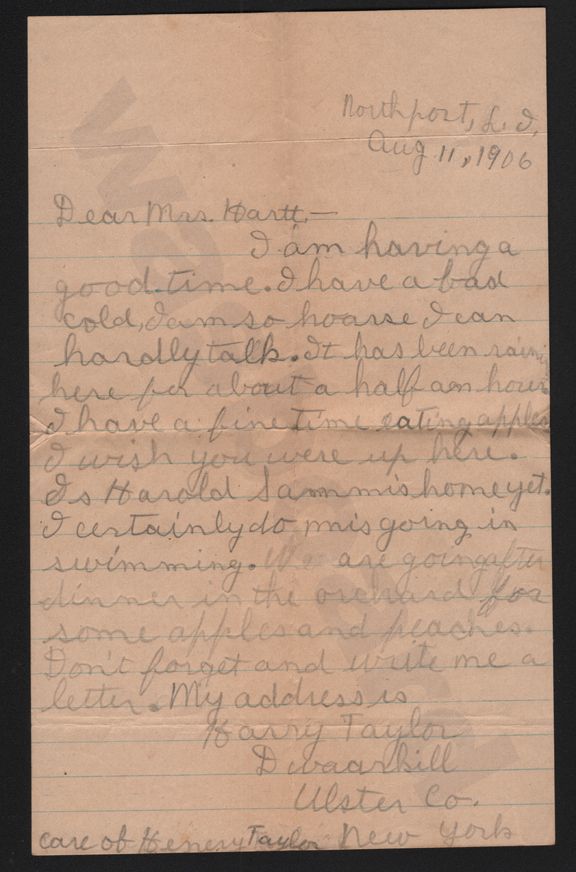 Northport, L. I,
Aug 11, 1906
Dear Mrs. Hartt,—
I am having a
good time. I have a bad
cold, I am so hoarse I can
hardly talk. It has been
here for about a half am hour.
I have a fine time eating apples
I wish you were up here.
Is Harold Sammis home yet.
I certainly do mis going in
swimming. We are going after
dinner in the orchard for
some apples and peaches.
Don't forget and write me a
letter. My address is
Harry Taylor
Dwaarkill
Ulster Co.
care of Henery Taylor New York